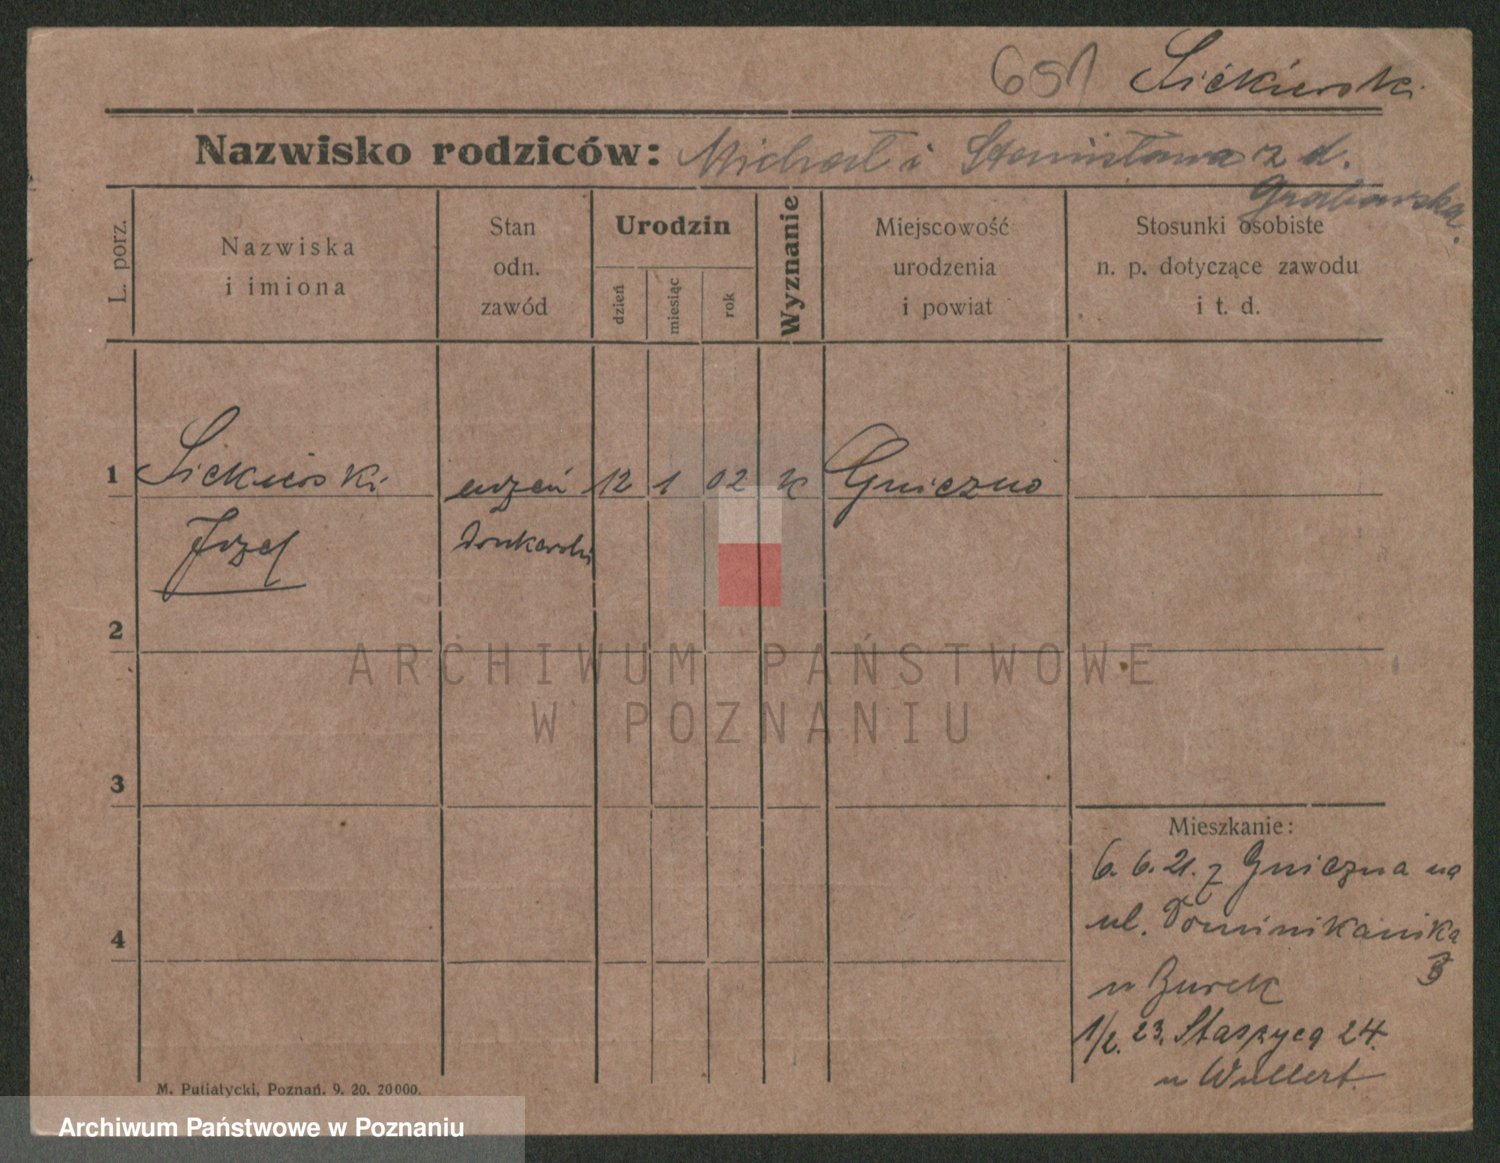 651 Siekierski
Nazwisko rodziców: Michał i Stanisława z d.
Grabowska.
L. porz.
Nazwiska
i imiona
Stan
odn.
zawód
Urodzin
dzień
miesiąc
rok
Wyznanie
Miejscowość
urodzenia
i powiat
Stosunki osobiste
n. p. dotyczące zawodu
i t. d.
1 Siekierski uczeń 12 1 02 k Gniezno
Józef drukarski
2
3
4
Mieszkanie:
6. 6. 21. z Gniezna na
ul. Dominikańska
3
u Burek
1/2. 23. Staszyca 24.
u Wullert
M. Putiatycki, Poznań. 9. 20. 20000.
ARCHIWUM PAŃSTWOWE
W POZNANIU
Archiwum Państwowe w Poznaniu